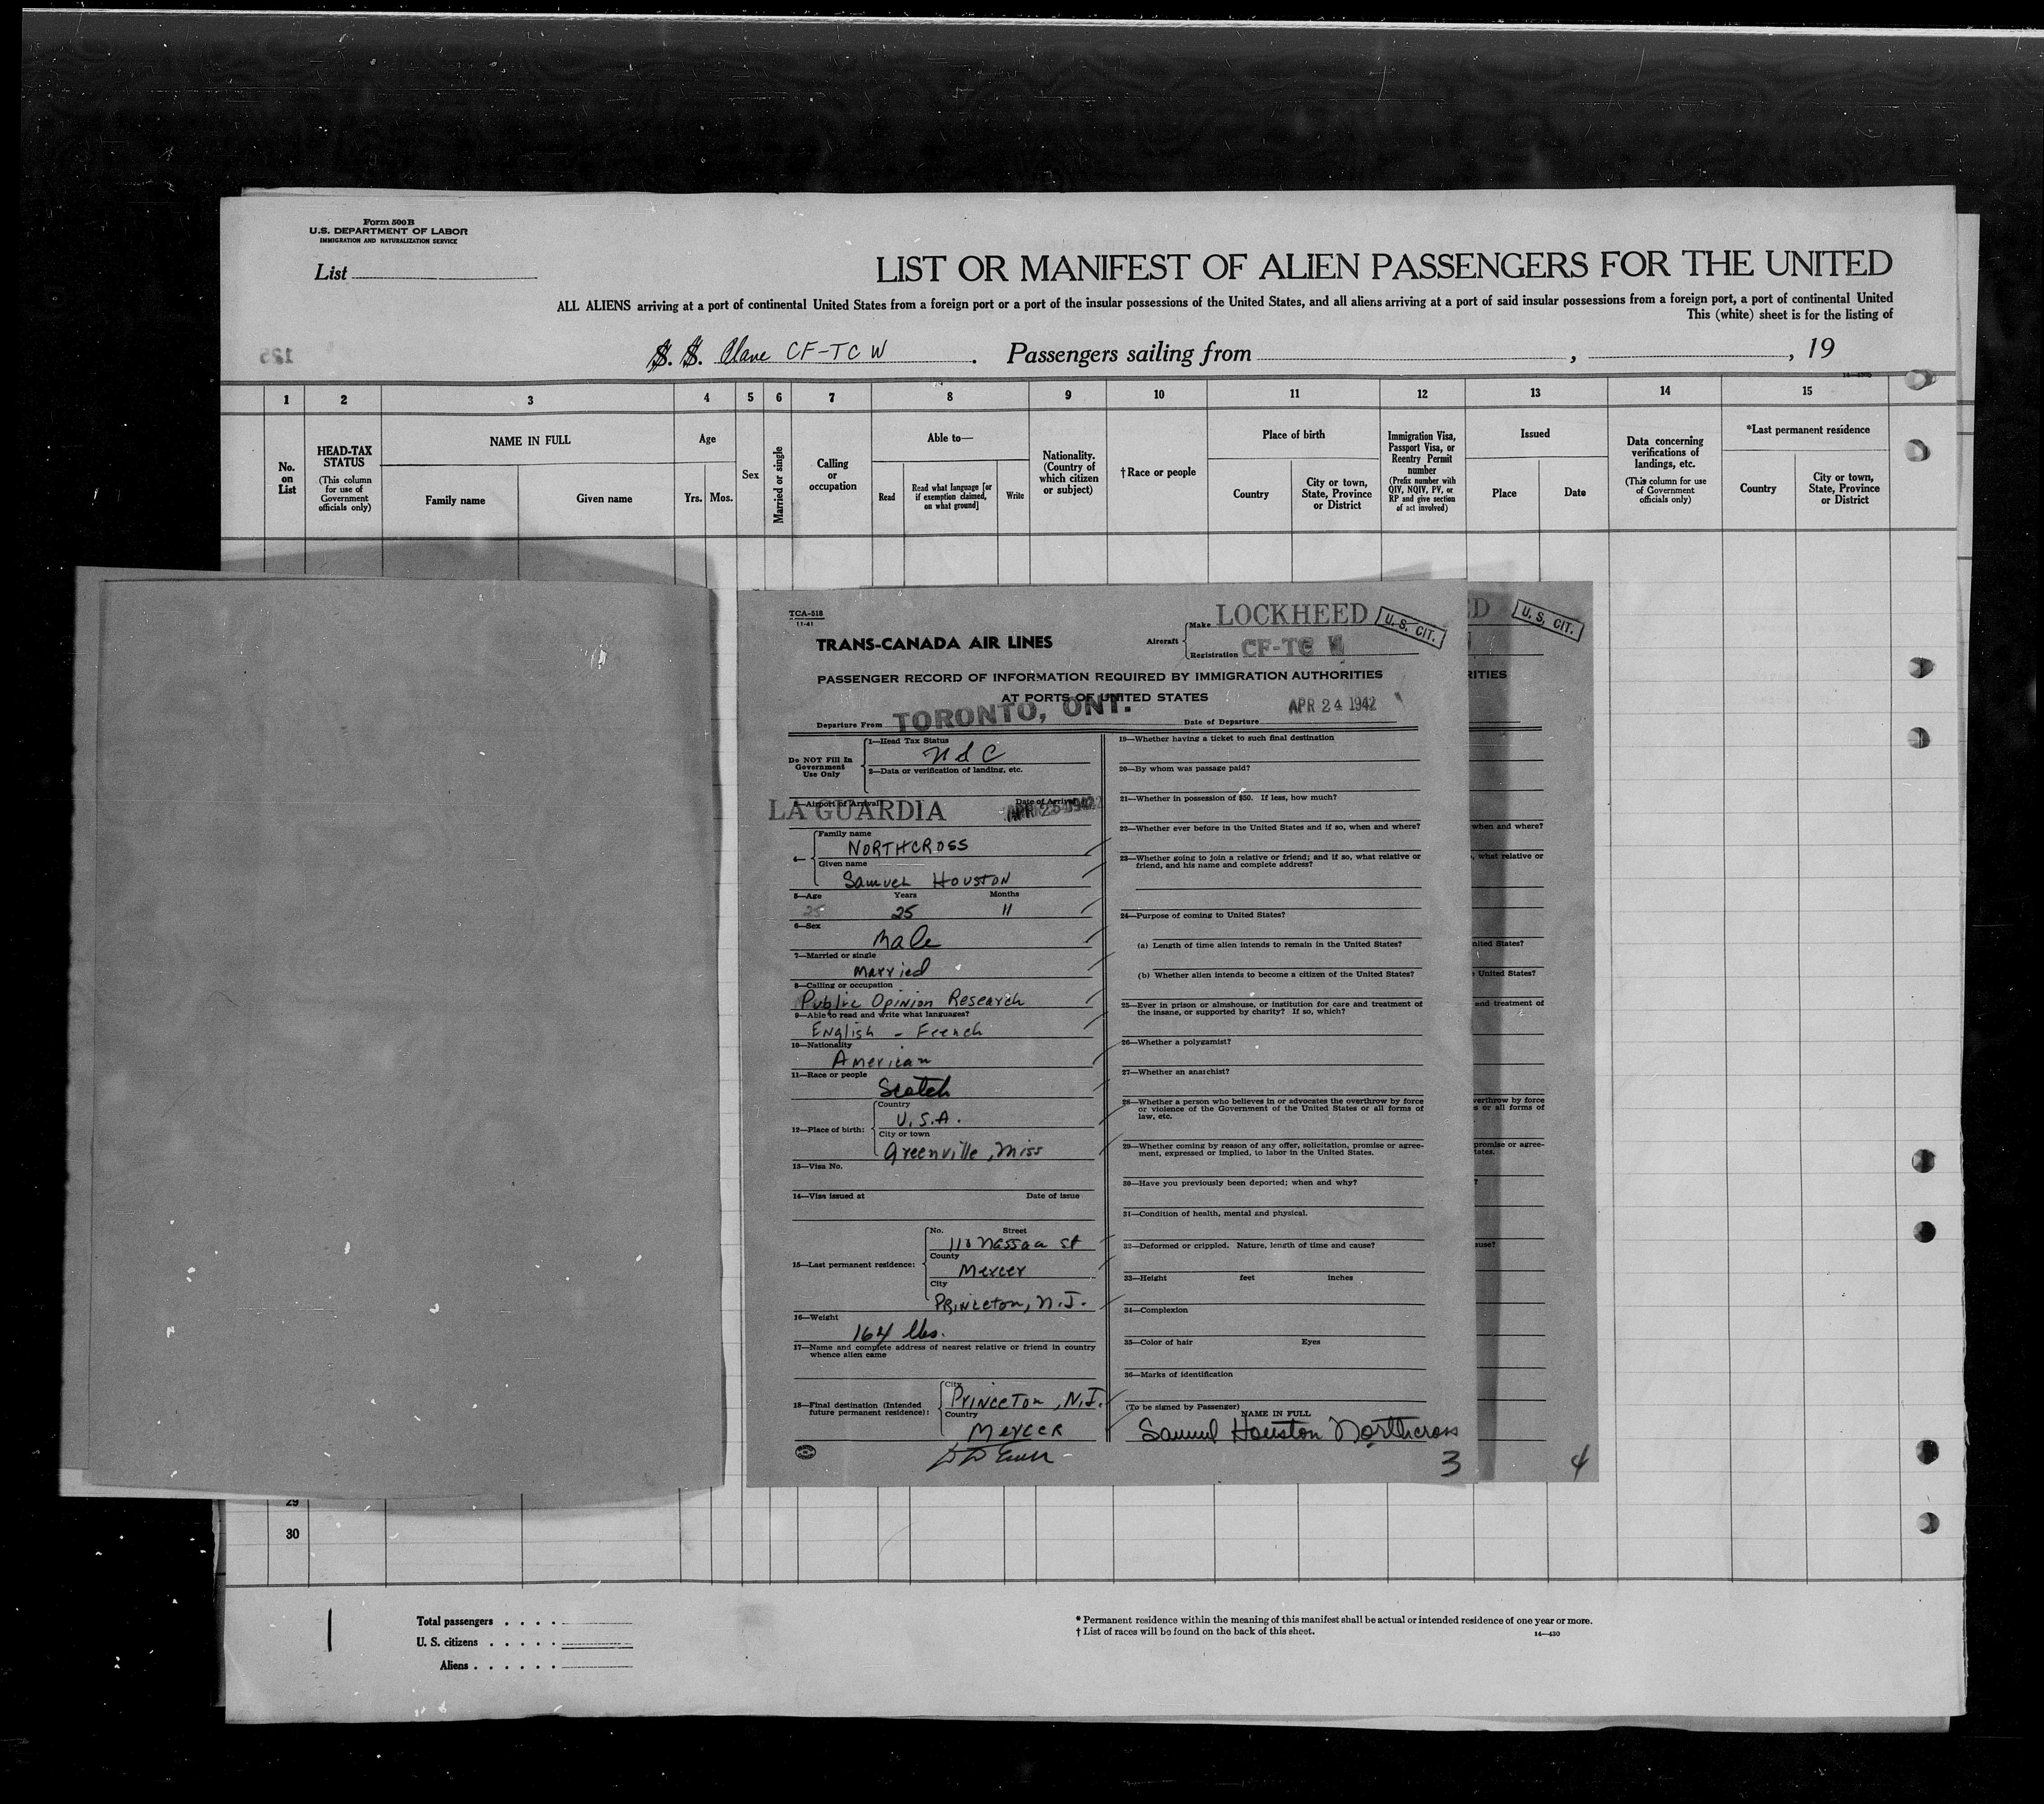 Form 500 B
U.S. DEPARTMENT OF LABOR
IMMIGRATION AND NATURALIZATION SERVICE
List
LIST OR MANIFEST OF ALIEN PASSENGERS FOR THE UNITED
ALL ALIENS arriving at a port of continental United States from a foreign port or a port of the insular possessions of the United States, and all aliens arriving at a port of said insular possessions from a foreign port, a port of continental United
This (white) sheet is for the listing of
125
S. S. Plane CF-TCW. Passengers sailing from , , 19
1 2 3 4 5 6 7 8 9 10 11 12 13 14 15
No. on List
HEAD-TAX STATUS
(This column for use of Government officials only)
NAME IN FULL
Family name
Given name
Age
Yrs. Mos.
Sex
Married or single
Calling or occupation
Able to—
Read
Read what language [or if exemption claimed, on what ground]
Write
Nationality. (Country of which citizen or subject)
†Race or people
Place of birth
Country
City or town, State, Province or District
Immigration Visa, Passport Visa, or Reentry Permit number
(Prefix number with QIV, NQIV, PV, or RP and give section of act involved)
Issued
Place
Date
Data concerning verifications of landings, etc.
(This column for use of Government officials only)
*Last permanent residence
Country
City or town, State, Province or District
TCA-518
11-41
TRANS-CANADA AIR LINES
Aircraft
Make LOCKHEED
Registration CF-TC W
U. S. CIT.
PASSENGER RECORD OF INFORMATION REQUIRED BY IMMIGRATION AUTHORITIES
AT PORTS OF UNITED STATES
Departure From TORONTO, ONT.
Date of Departure APR 24 1942
Do NOT Fill In
Government
Use Only
1—Head Tax Status
2—Data or verification of landing, etc.
3—Airport of Arrival
LA GUARDIA
Date of Arrival
APR 25 1942
4—
Family name
NORTHCROSS
Given name
Samuel Houston
5—Age Years Months
25 25 11
6—Sex
Male
7—Married or single
Married
8—Calling or occupation
Public Opinion Research
9—Able to read and write what languages?
English - French
10—Nationality
American
11—Race or people
Scotch
12—Place of birth:
Country
U.S.A.
City or town
Greenville, Miss
13—Visa No.
14—Visa issued at Date of issue
15—Last permanent residence:
No. Street
110 Nassau St
County
Mercer
City
Princeton, N.J.
16—Weight
164 lbs.
17—Name and complete address of nearest relative or friend in country
whence alien came
18—Final destination (Intended
future permanent residence):
City
Princeton, N.J.
Country
Mercer
19—Whether having a ticket to such final destination
20—By whom was passage paid?
21—Whether in possession of $50. If less, how much?
22—Whether ever before in the United States and if so, when and where?
23—Whether going to join a relative or friend; and if so, what relative or
friend, and his name and complete address?
24—Purpose of coming to United States?
(a) Length of time alien intends to remain in the United States?
(b) Whether alien intends to become a citizen of the United States?
25—Ever in prison or almshouse, or institution for care and treatment of
the insane, or supported by charity? If so, which?
26—Whether a polygamist?
27—Whether an anarchist?
28—Whether a person who believes in or advocates the overthrow by force
or violence of the Government of the United States or all forms of
law, etc.
29—Whether coming by reason of any offer, solicitation, promise or agree-
ment, expressed or implied, to labor in the United States.
30—Have you previously been deported; when and why?
31—Condition of health, mental and physical.
32—Deformed or crippled. Nature, length of time and cause?
33—Height feet inches
34—Complexion
35—Color of hair Eyes
36—Marks of identification
(To be signed by Passenger)
NAME IN FULL
Samuel Houston Northcross
3
D
U. S. CIT.
RITIES
when and where?
, what relative or
nited States?
United States?
and treatment of
verthrow by force
s or all forms of
promise or agree-
tates.
?
ause?
4
29
30
Total passengers . . . .
U. S. citizens . . . . .
Aliens . . . . . .
* Permanent residence within the meaning of this manifest shall be actual or intended residence of one year or more.
† List of races will be found on the back of this sheet.
14—430